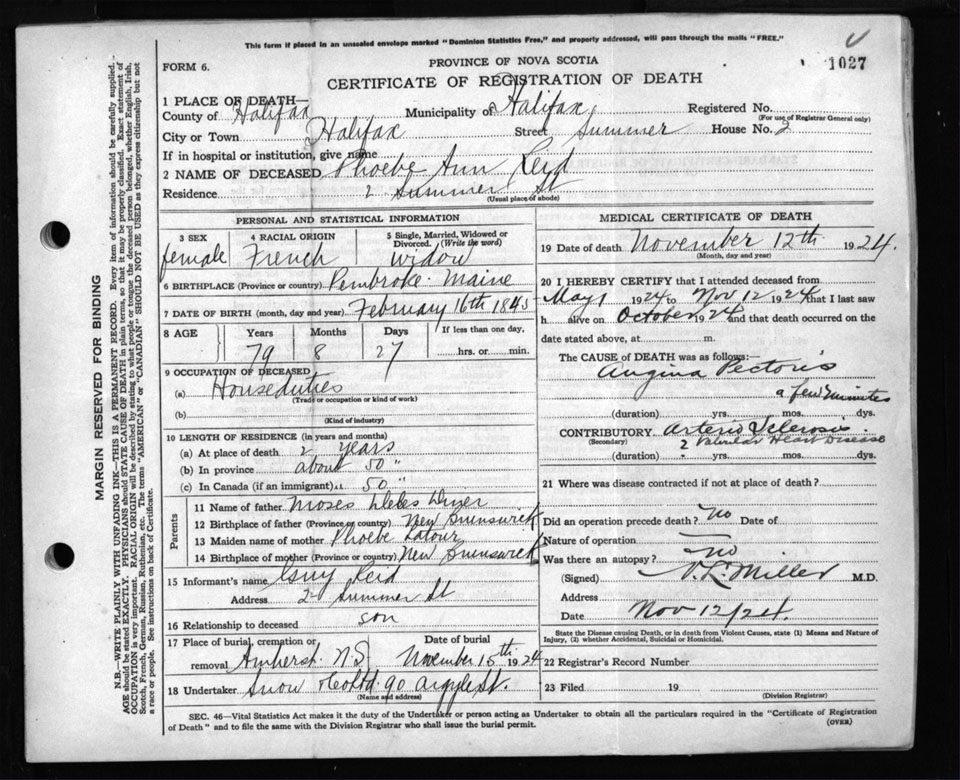 This form if placed in an unsealed envelope marked "Dominion Statistics Free," and property addressed, will pass through the mails "FREE."
FORM 6.
PROVINCE OF NOVA SCOTIA
1027
CERTIFICATE OF REGISTRATION OF DEATH
1 PLACE OF DEATH—
County of Halifax Municipality of Halifax Registered No.
(For use of Registrar General only)
City or Town Halifax Street Summer House No. 2
If in hospital or institution, give name
2 NAME OF DECEASED Phoebe Ann Reid
Residence 2 Summer St
(Usual place of abode)
PERSONAL AND STATISTICAL INFORMATION
3 SEX 4 RACIAL ORIGIN 5 Single, Married, Widowed or
Divorced. (Write the word)
female French widow
6 BIRTHPLACE (Province or country) Pembroke Maine
7 DATE OF BIRTH (month, day and year) February 16th 1845
8 AGE Years Months Days If less than one day,
79 8 27 hrs. or min.
9 OCCUPATION OF DECEASED
(a) House duties
(Trade or occupation or kind of work)
(b)
(Kind of industry)
10 LENGTH OF RESIDENCE (in years and months)
(a) At place of death 2 years
(b) In province about 50 "
(c) In Canada (if an immigrant) 50 "
Parents
11 Name of father Moses Dwyer
12 Birthplace of father (Province or country) New Brunswick
13 Maiden name of mother Phoebe Latour
14 Birthplace of mother (Province or country) New Brunswick
15 Informant's name Guy Reid
Address 2 Summer St
16 Relationship to deceased son
17 Place of burial, cremation or Date of burial
removal Amherst N.S. November 15th 1924
18 Undertaker Snow & Co Ltd. 90 Argyle St.
(Name and address)
MEDICAL CERTIFICATE OF DEATH
19 Date of death November 12th 1924.
(Month, day and year)
20 I HEREBY CERTIFY that I attended deceased from
May 1 1924 to Nov 12 1924 that I last saw
h alive on October 1924 and that death occurred on the
date stated above, at m.
The CAUSE OF DEATH was as follows:
Angina Pectoris
a few minutes
(duration) yrs. mos. dys.
CONTRIBUTORY Arterio Sclerosis
(Secondary) 2 Valvular Heart Disease
(duration) yrs. mos. dys.
21 Where was disease contracted if not at place of death?
Did an operation precede death? No Date of
Nature of operation
Was there an autopsy? No
(Signed) Miller M.D.
Address
Date Nov 12/24.
State the Disease causing Death, or in death from Violent Causes, state (1) Means and Nature of
Injury, (2) whether Accidental, Suicidal or Homicidal.
22 Registrar's Record Number
23 Filed 19
(Division Registrar)
SEC. 46—Vital Statistics Act makes it the duty of the Undertaker or person acting as Undertaker to obtain all the particulars required in the "Certificate of Registration
of Death" and to file the same with the Division Registrar who shall issue the burial permit.
(OVER)
MARGIN RESERVED FOR BINDING
N.B.—WRITE PLAINLY WITH UNFADING INK—THIS IS A PERMANENT RECORD. Every item of information should be carefully supplied.
AGE should be stated EXACTLY. PHYSICIANS should STATE CAUSE OF DEATH in plain terms, so that it may be properly classified. Exact statement of
OCCUPATION is very important. RACIAL ORIGIN will be described by stating to what people or tongue the deceased person belonged, whether English, Irish,
Scotch, French, German, Russian, Ruthenian, etc. The terms "AMERICAN" or "CANADIAN" SHOULD NOT BE USED as they express citizenship but not
a race or people. See instructions on back of Certificate.